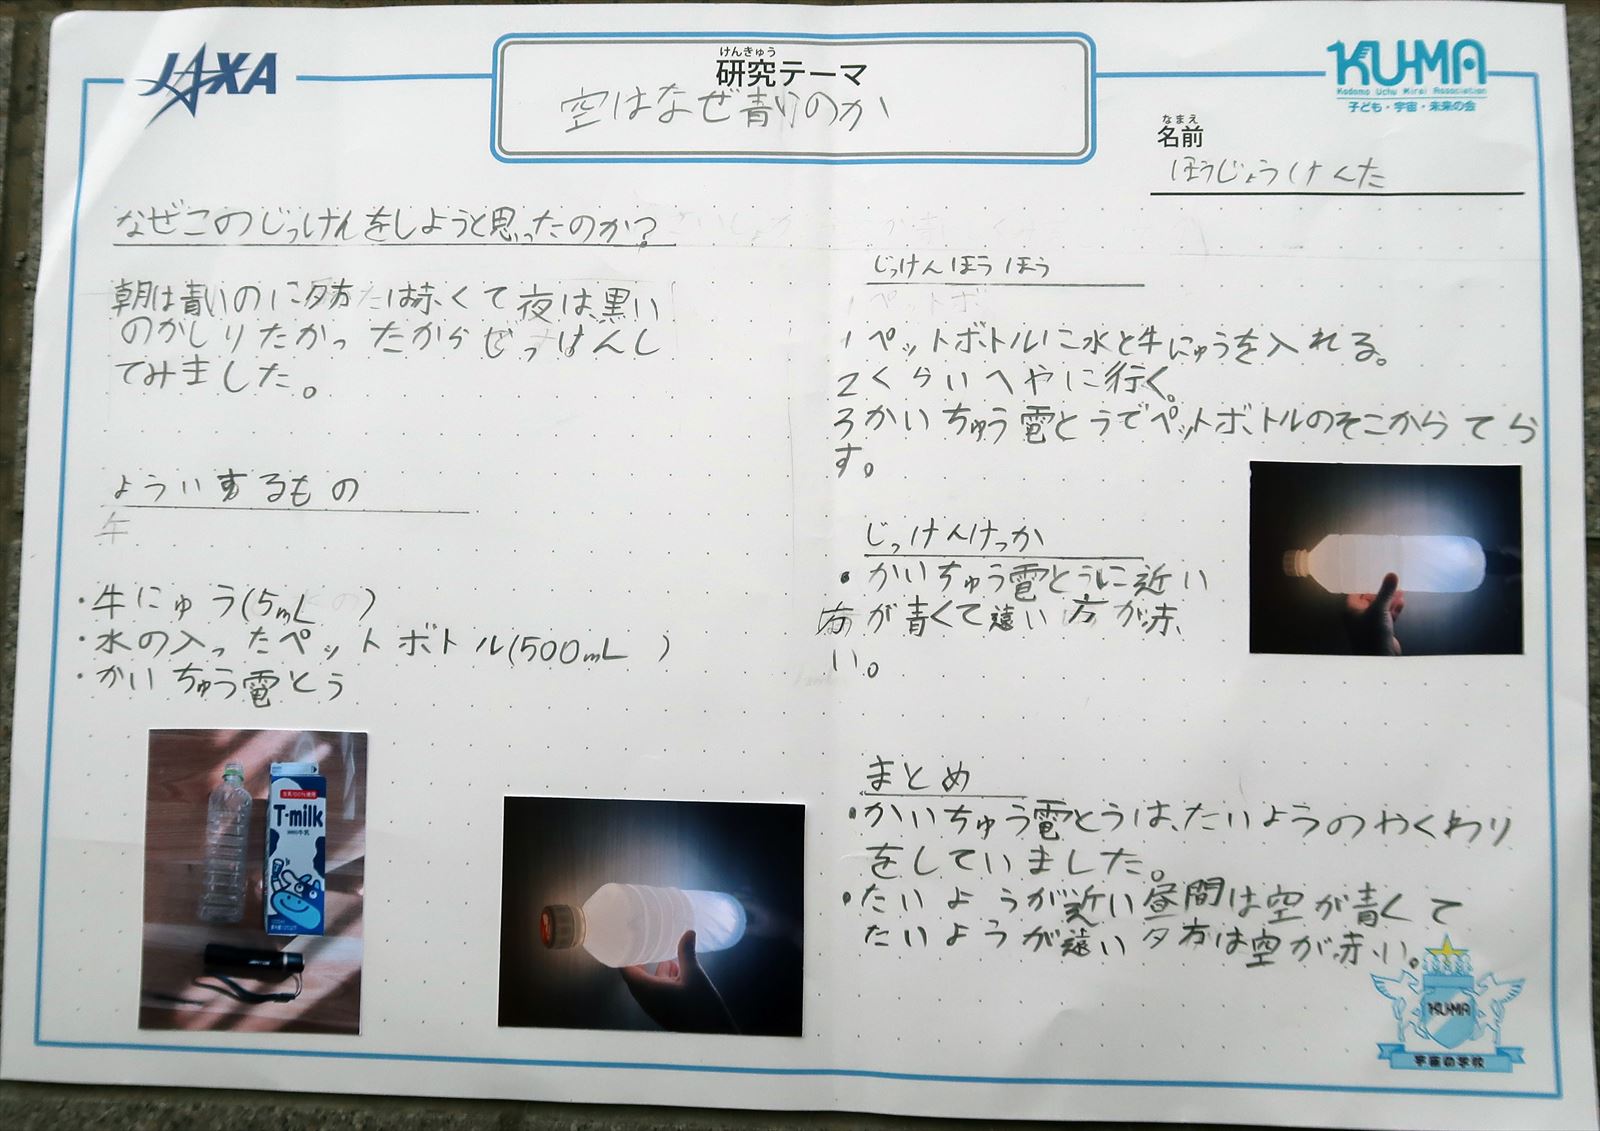 JAXA
けんきゅう
研究テーマ
空はなぜ青いのか
KU-MA
Kodomo Uchu Mirai Association
子ども・宇宙・未来の会
なまえ
名前
ほうじょうけんた
なぜこのじっけんをしようと思ったのか?
朝は青いのに夕方は赤くて夜は黒い
のがしりたかったからぜっはんし
てみました。
よういするもの
牛
・牛にゅう(5mL)
・水の入ったペットボトル(500mL )
・かいちゅう電とう
T-milk
じっけんほうほう
1ペットボトルに水と牛にゅうを入れる。
2くらいへやに行く。
3かいちゅう電とうでペットボトルのそこからてら
す。
じっけんけっか
・かいちゅう電とうに近い
方が青くて遠い方が赤
い。
まとめ
・かいちゅう電とうは、たいようのやくわり
をしていました。
・たいようが近い昼間は空が青くて
たいようが遠い夕方は空が赤い。
KU-MA
宇宙の学校